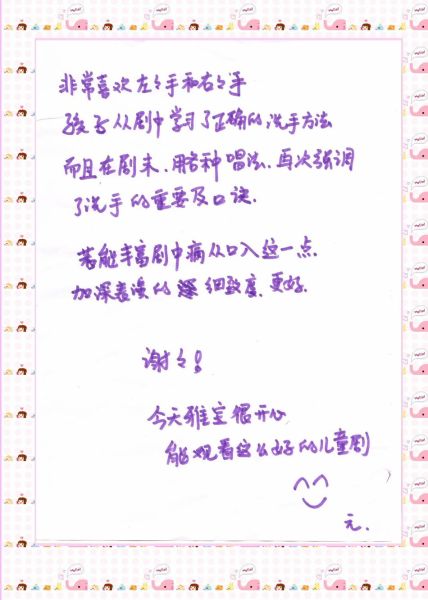 非常喜欢左々手和右々手
孩子从剧中学习了正确的洗手方法
而且在剧末、用各种唱法、再次强调
了洗手的重要及口诀.
若能丰富剧中病从口入这一点.
加深表演的细致度.更好.
谢々!
今天雅宝很开心
能观看这么好的儿童剧
元.